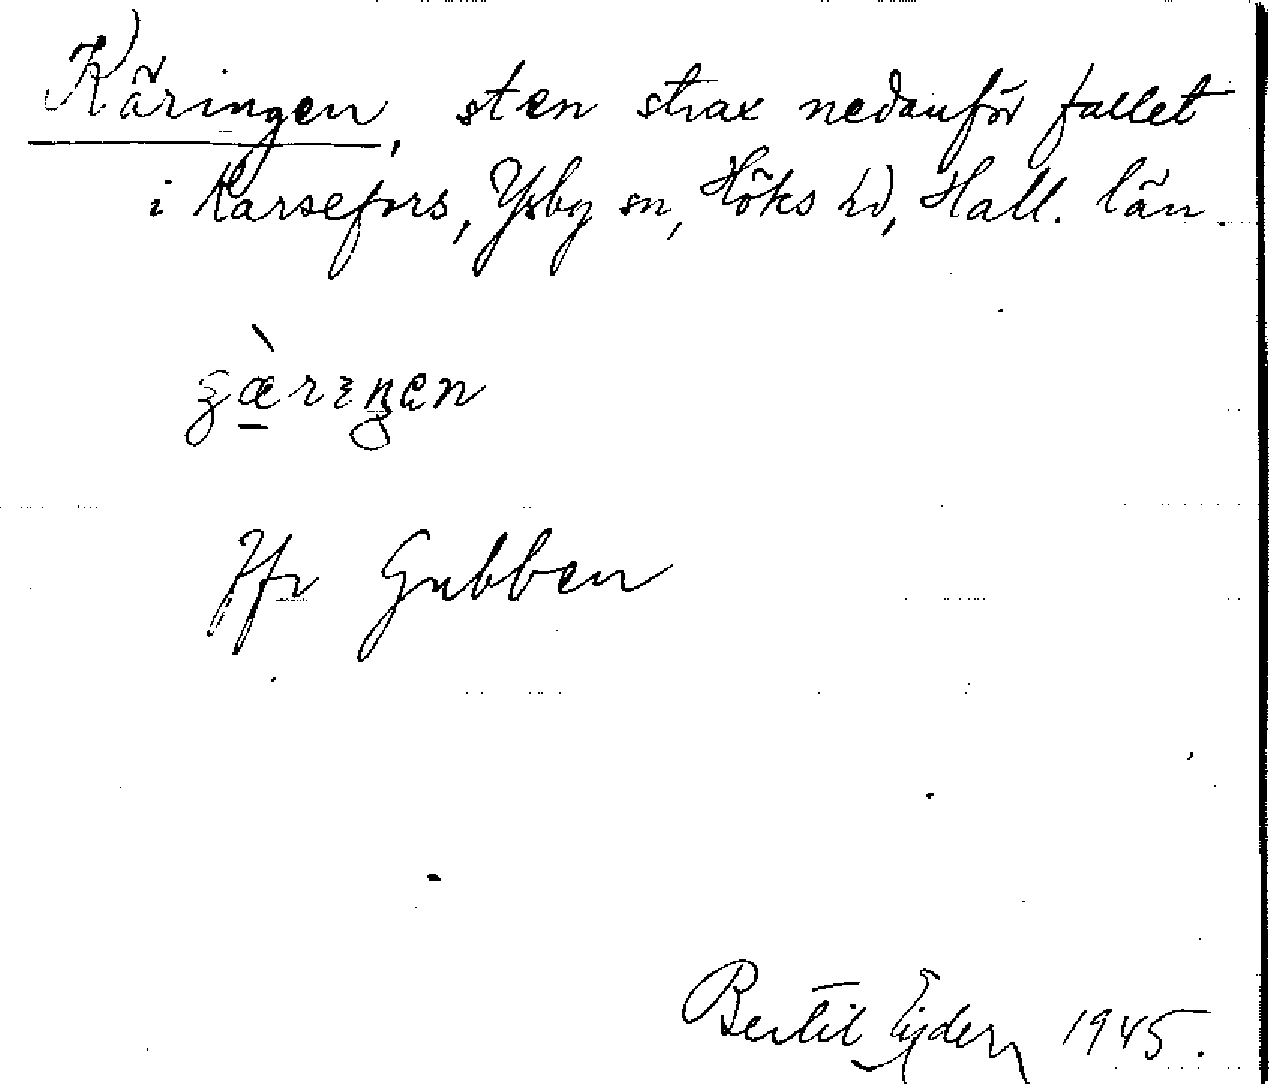 Käringen, sten strax nedanför fallet
i Karsefors, Ysby sn, Höks hd, Hall. län.
Jfr Gubben
Bertil Ejder 1945.